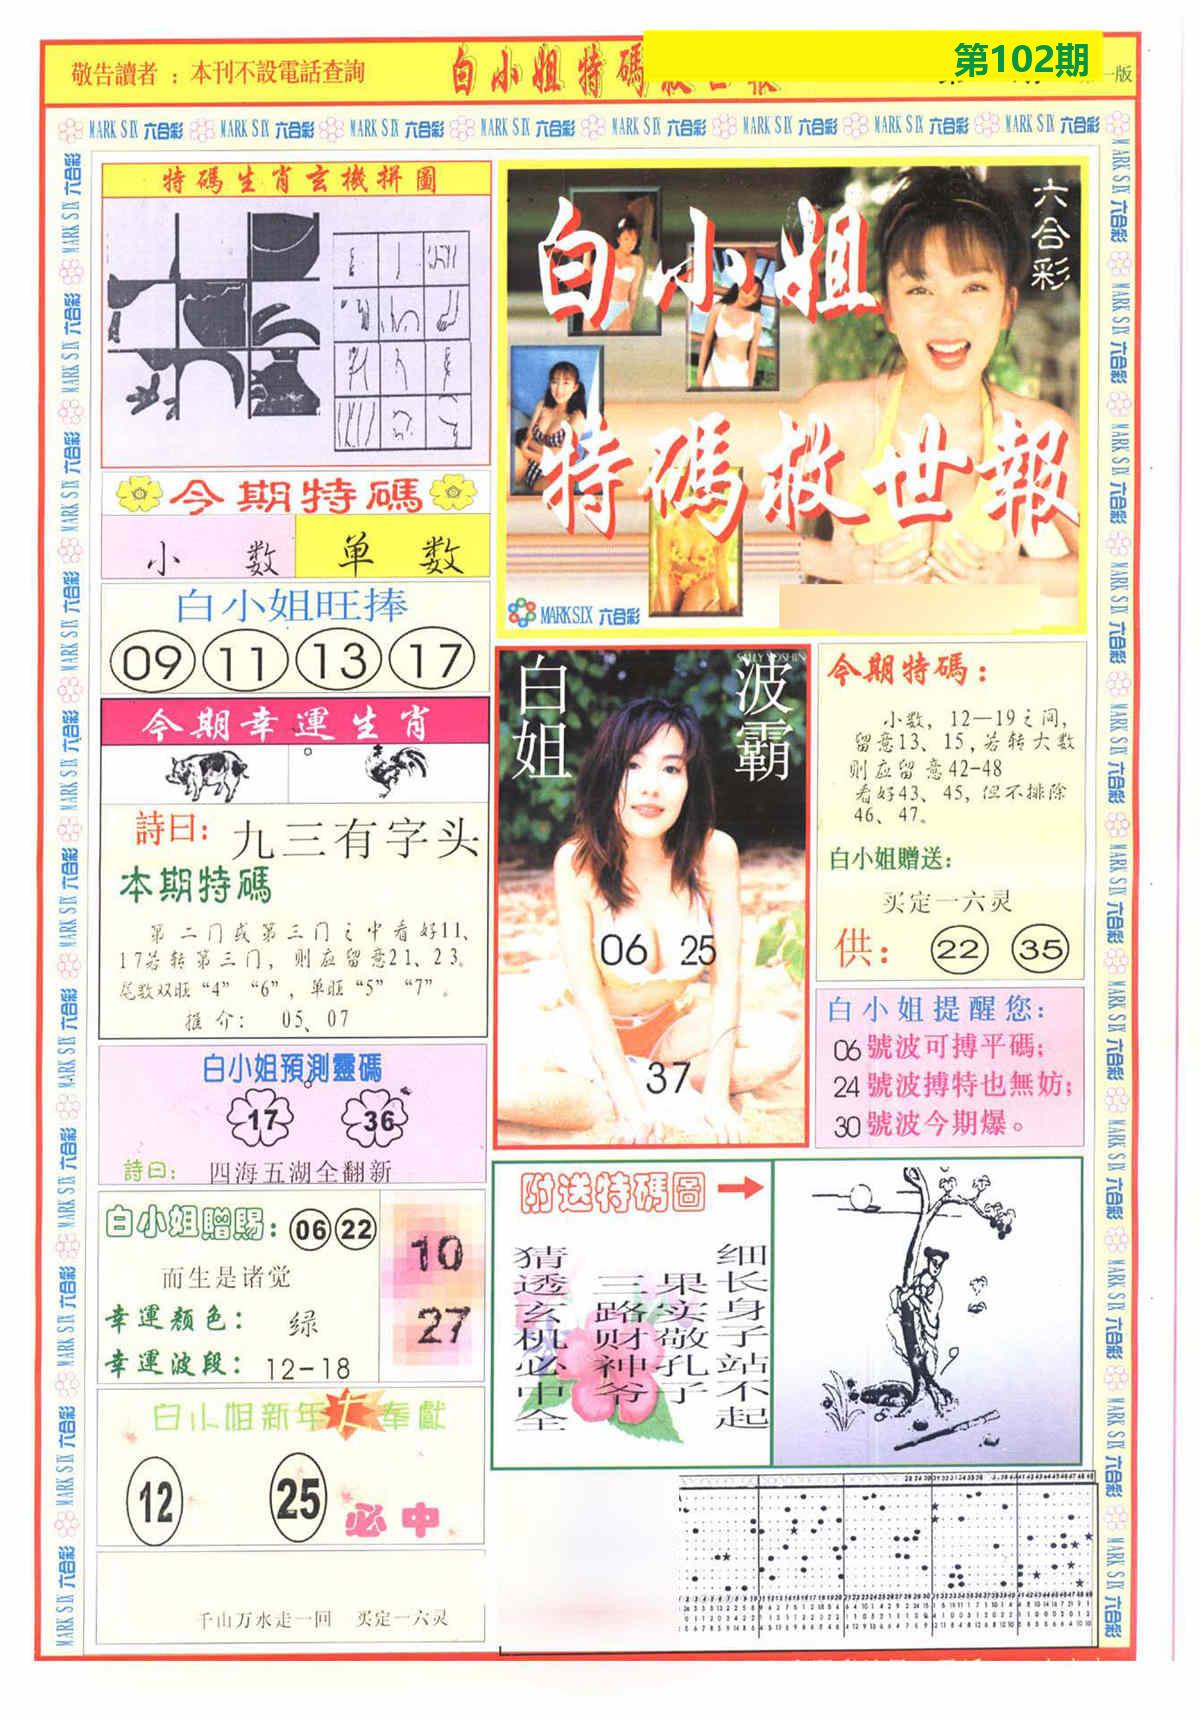 敬告讀者：本刊不設電話查詢
白小姐特碼救世報
第102期
一版
MARK SIX 六合彩 MARK SIX 六合彩 MARK SIX 六合彩 MARK SIX 六合彩 MARK SIX 六合彩 MARK SIX 六合彩 MARK SIX 六合彩 MARK SIX 六合彩
特碼生肖玄機拼圖
今期特碼
小数 单数
白小姐旺捧
09 11 13 17
今期幸運生肖
詩曰：九三有字头
本期特碼
第二门或第三门之中看好11、
17若转第三门，则应留意21、23。
尾数双旺“4”“6”，单旺“5”“7”。
推介：05、07
白小姐預測靈碼
17 36
詩曰：四海五湖全翻新
白小姐贈賜：06 22
而生是诸觉
幸運顏色：绿
幸運波段：12-18
10
27
白小姐新年大奉獻
12 25 必中
千山万水走一回 买定一六灵
六合彩
白小姐
特碼救世報
MARK SIX 六合彩
白姐
波霸
06 25
37
今期特碼：
小数，12—19之间，
留意13、15，若转大数
则应留意42-48
看好43、45，但不排除
46、47。
白小姐贈送：
买定一六灵
供：22 35
白小姐提醒您：
06號波可搏平碼；
24號波搏特也無妨；
30號波今期爆。
附送特碼圖
细长身子站不起
果实敬孔子
三路财神爷
猜透玄机必中全